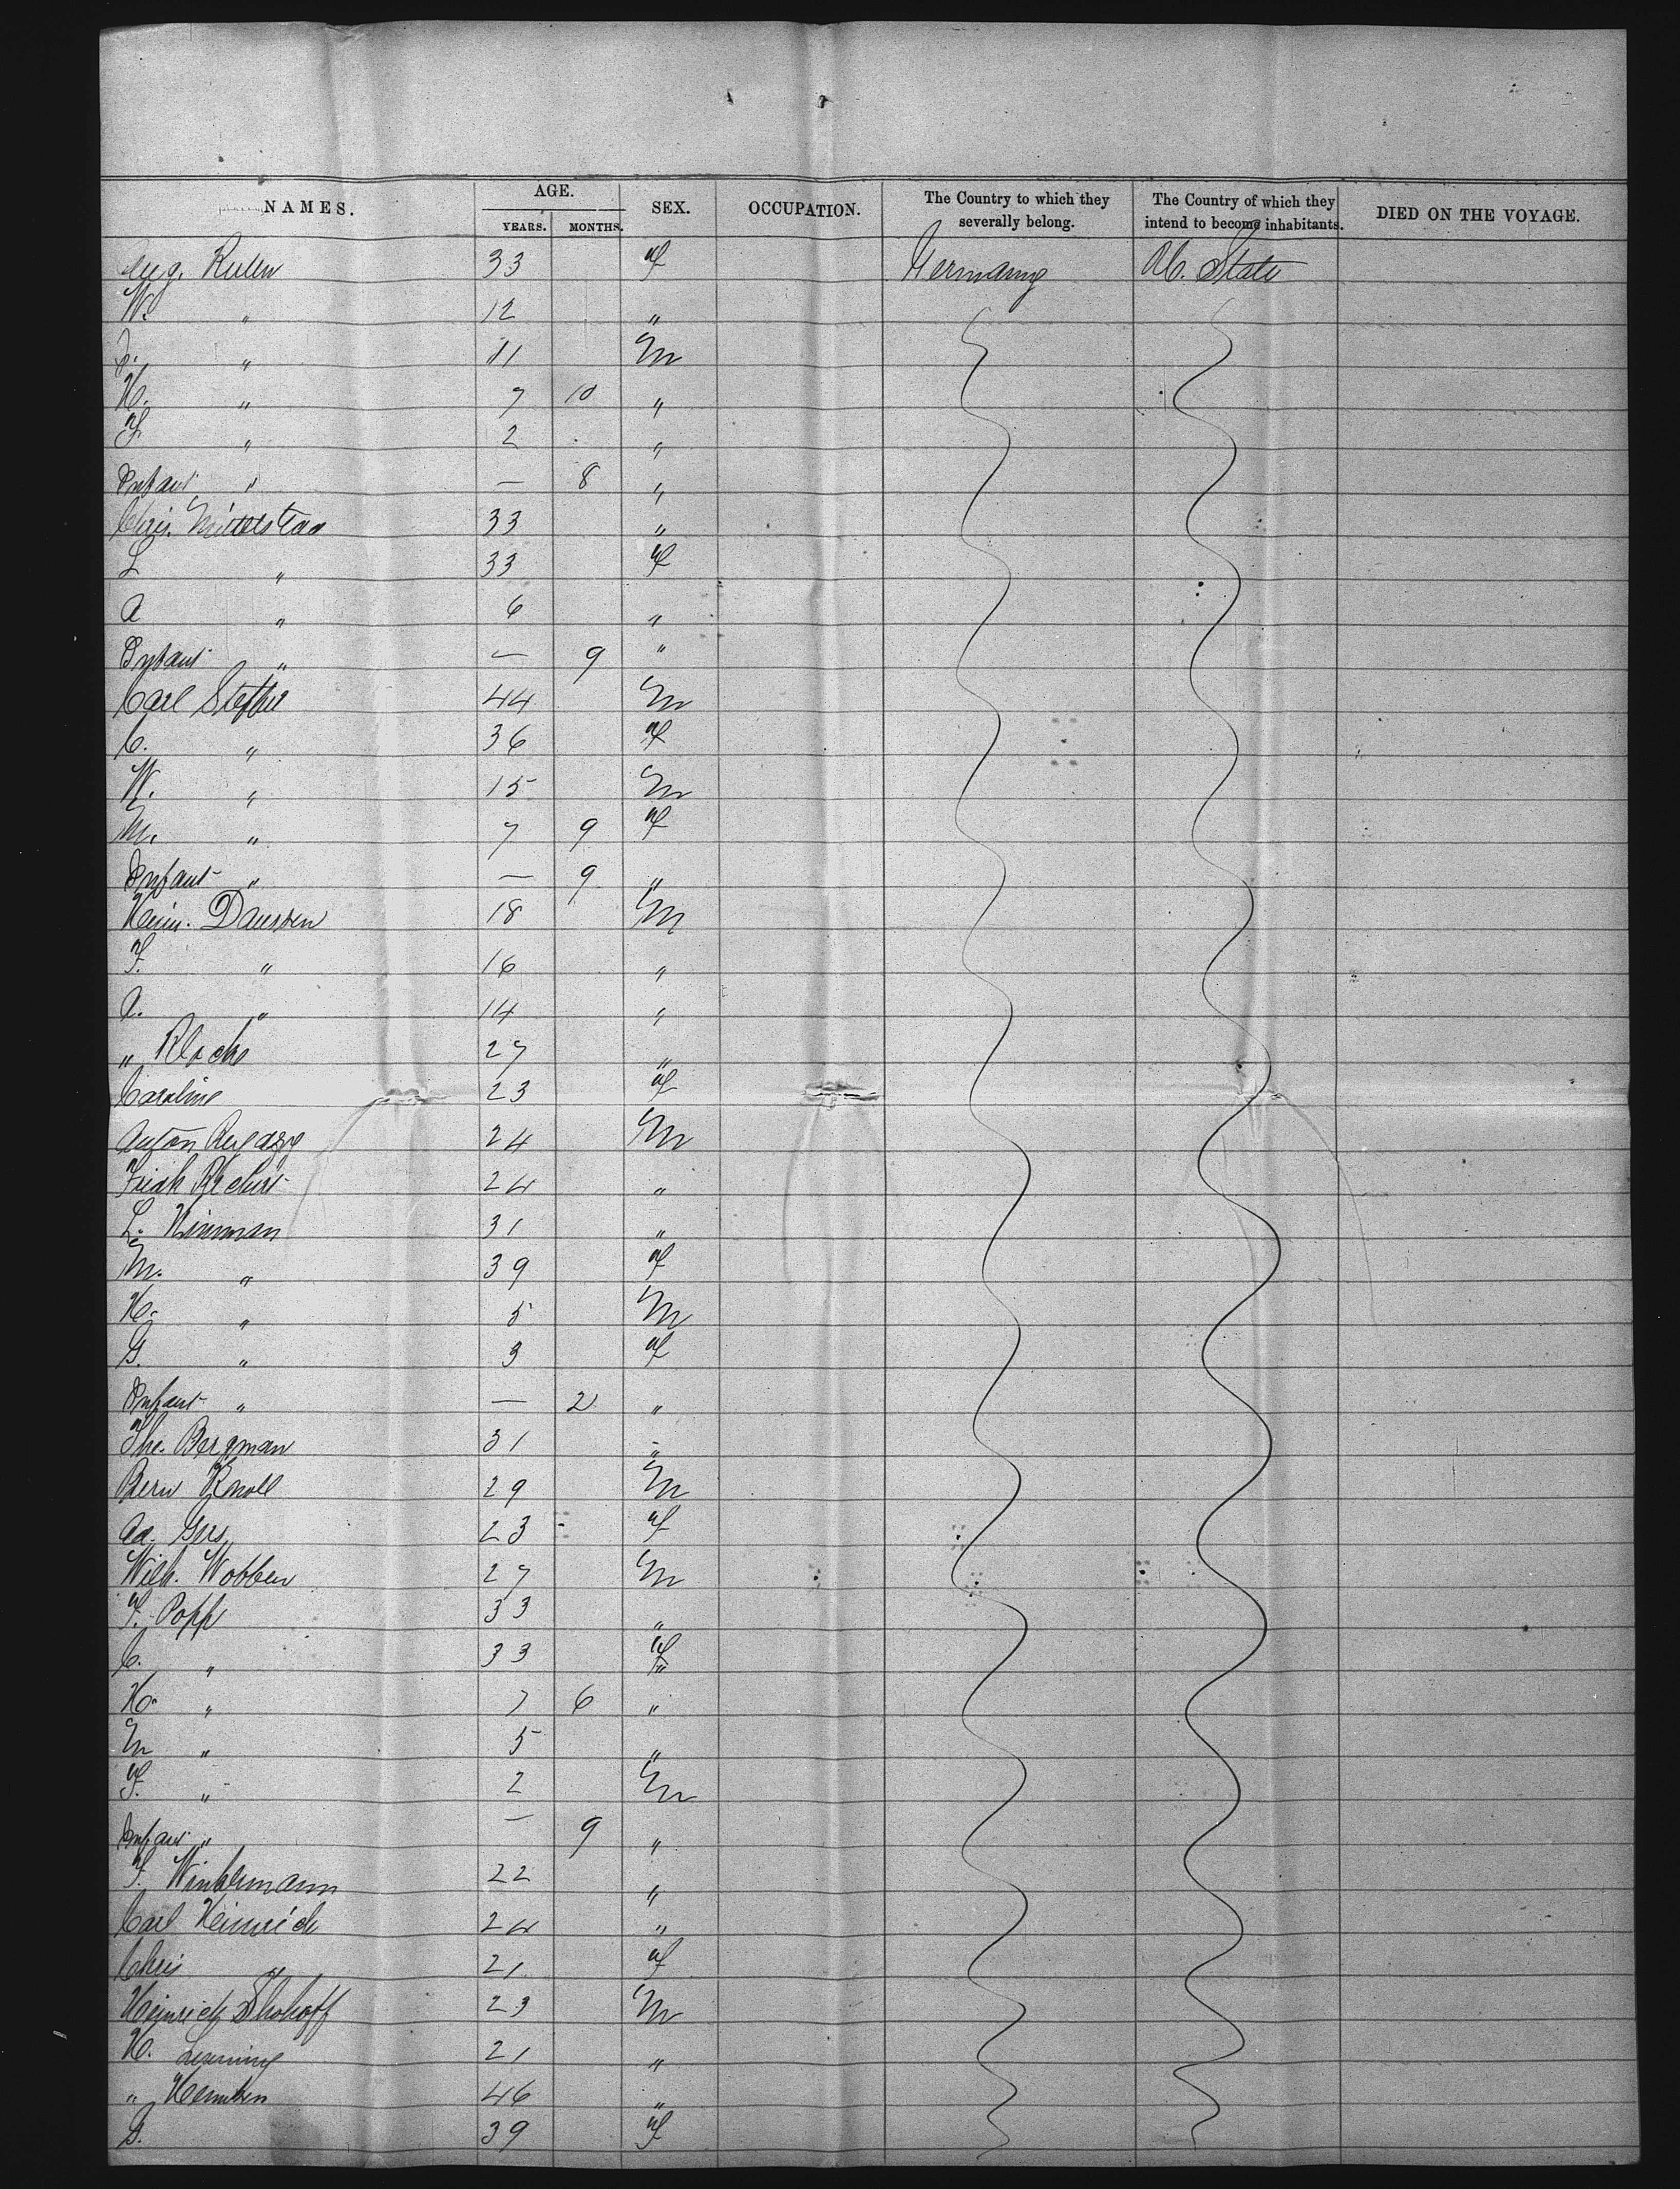 NAMES. AGE. YEARS. MONTHS. SEX. OCCUPATION. The Country to which they severally belong. The Country of which they intend to become inhabitants. DIED ON THE VOYAGE.
Aug. 33 f Germany St. State
W. " 12 "
" 11 M
H. " 7 10 "
F " 2 "
Infant " — 8 "
Chris. Mittelstaa 33 "
L " 33 f
A " 6 "
Infant " — 9 "
Carl 44 M
C. " 36 f
W. " 15 M
M. " 7 9 f
Infant " — 9 "
Heinr. 18 M
F. " 16 "
A. " 14 "
" 27 "
Caroline 23 f
Anton 24 M
24 "
L. Hinman 31 "
M. " 39 f
H. " 5 M
G. " 3 f
Infant " — 2 "
The. Bergman 31 "
Bern Knoll 29 M
Ad. 23 f
Wilh. Wobben 27 M
F. Popp 33 "
C. " 33 f
H. " 7 6 "
M " 5 "
F. " 2 M
Infant " — 9 "
F. Winkelmann 22 "
Carl Heinrich 24 "
Chris " 21 f
Heinrich 23 M
H. 21 "
" 46 "
G. 39 f